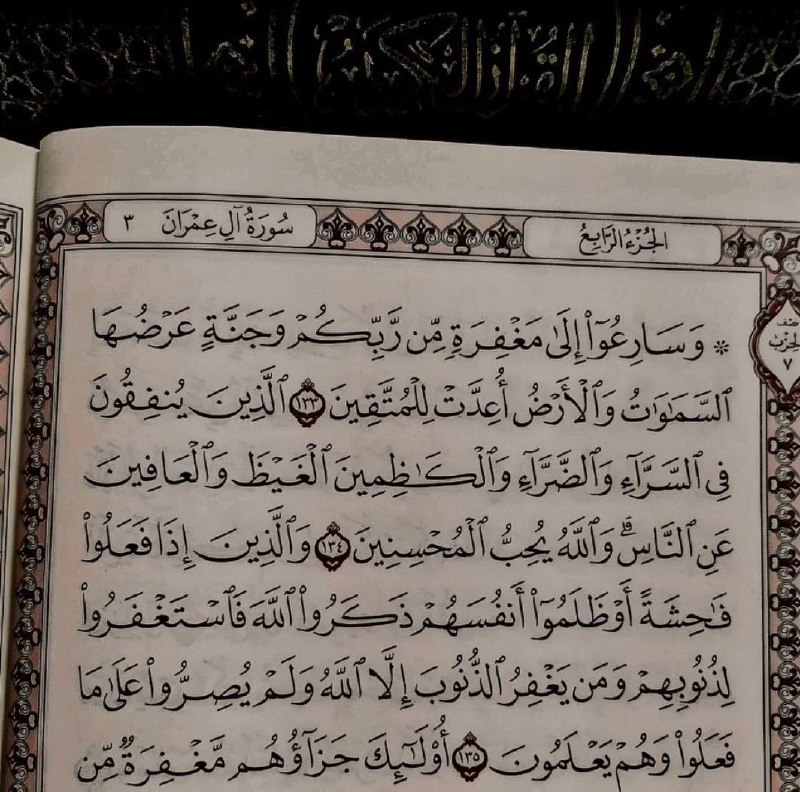 القرآن الكريم
سُورَةُ آلِ عِمْرَانَ ٣
الجُزْءُ الرَّابِعُ
نصف
الحزب
٧
* وَسَارِعُوٓا۟ إِلَىٰ مَغْفِرَةٍ مِّن رَّبِّكُمْ وَجَنَّةٍ عَرْضُهَا
ٱلسَّمَٰوَٰتُ وَٱلْأَرْضُ أُعِدَّتْ لِلْمُتَّقِينَ ١٣٣ ٱلَّذِينَ يُنفِقُونَ
فِى ٱلسَّرَّآءِ وَٱلضَّرَّآءِ وَٱلْكَٰظِمِينَ ٱلْغَيْظَ وَٱلْعَافِينَ
عَنِ ٱلنَّاسِ ۗ وَٱللَّهُ يُحِبُّ ٱلْمُحْسِنِينَ ١٣٤ وَٱلَّذِينَ إِذَا فَعَلُوا۟
فَٰحِشَةً أَوْ ظَلَمُوٓا۟ أَنفُسَهُمْ ذَكَرُوا۟ ٱللَّهَ فَٱسْتَغْفَرُوا۟
لِذُنُوبِهِمْ وَمَن يَغْفِرُ ٱلذُّنُوبَ إِلَّا ٱللَّهُ وَلَمْ يُصِرُّوا۟ عَلَىٰ مَا
فَعَلُوا۟ وَهُمْ يَعْلَمُونَ ١٣٥ أُو۟لَٰٓئِكَ جَزَآؤُهُم مَّغْفِرَةٌ مِّن